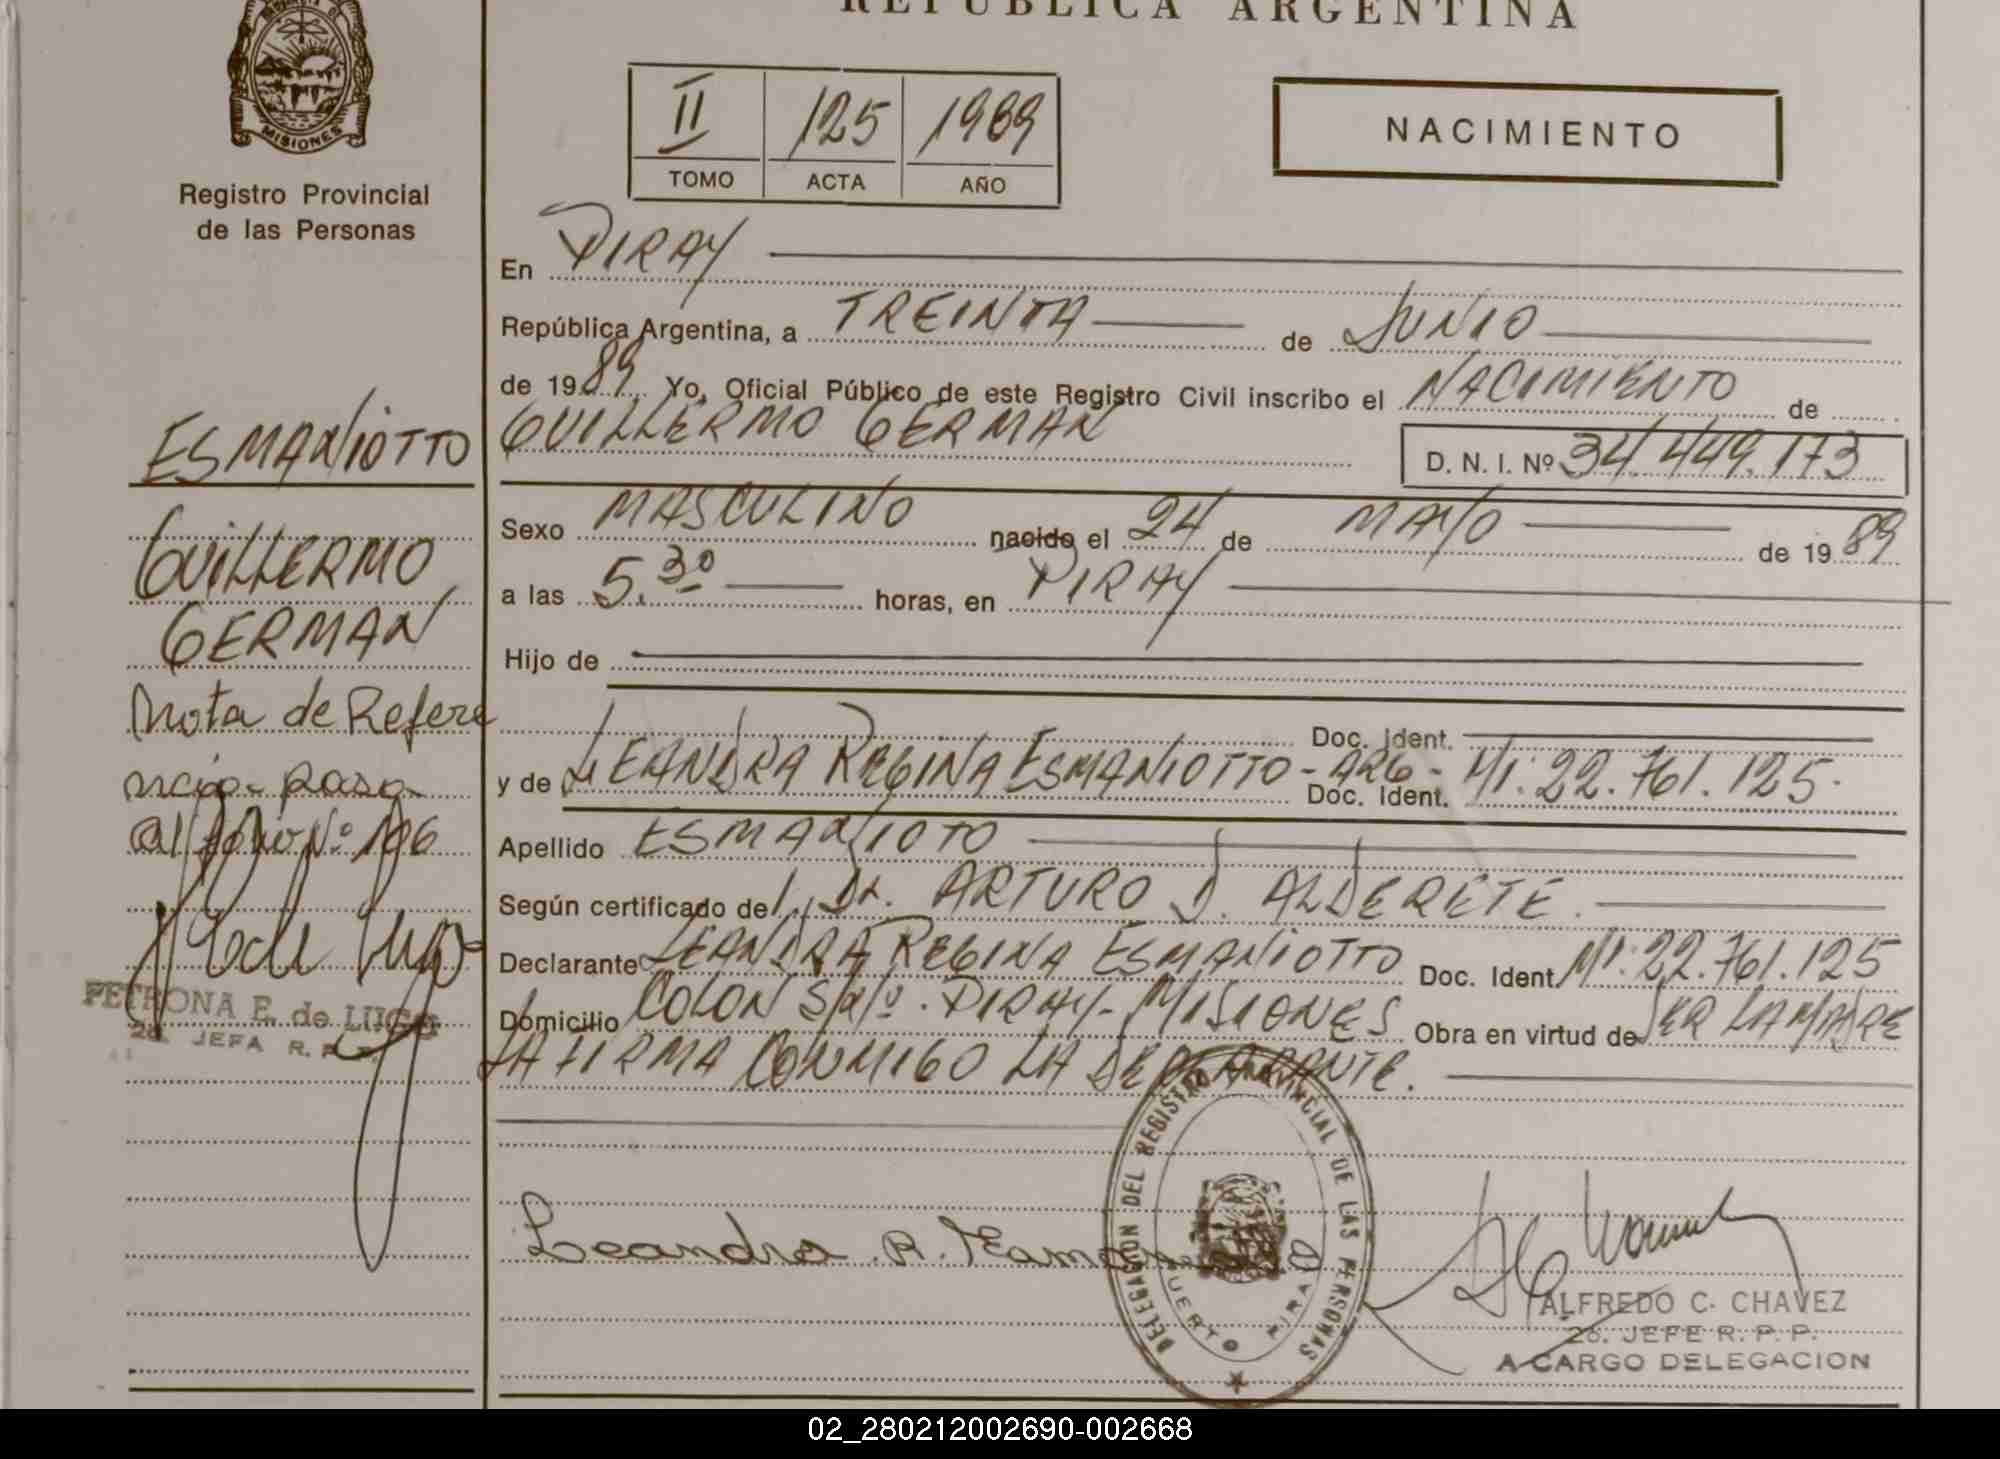 REPUBLICA ARGENTINA
MISIONES
Registro Provincial
de las Personas
II 125 1989
TOMO ACTA AÑO
NACIMIENTO
En PIRAY
República Argentina, a TREINTA de JUNIO
de 1989 Yo, Oficial Público de este Registro Civil inscribo el NACIMIENTO de
GUILLERMO GERMAN
D. N. I. Nº 34.449.173
Sexo MASCULINO nacido el 24 de MAYO de 1989
a las 5.30 horas, en PIRAY
Hijo de
Doc. Ident.
y de LEANDRA REGINA ESMANIOTTO - ARG - Doc. Ident. MI: 22.761.125.
Apellido ESMANIOTO
Según certificado del Dr. ARTURO D. ALDERETE.
Declarante LEANDRA REGINA ESMANIOTTO Doc. Ident. MI: 22.761.125
Domicilio COLON S/Nº. PIRAY - MISIONES Obra en virtud de SER LA MADRE
LA FIRMA CONMIGO LA DECLARANTE.
ESMANIOTTO
GUILLERMO
GERMAN
Nota de Refere
ncia pasa
al folio Nº 106
PETRONA E. de LUGO
2a. JEFA R. P. P.
Leandra R. Esma
DELEGACION DEL REGISTRO PROVINCIAL DE LAS PERSONAS
PUERTO PIRAY
ALFREDO C. CHAVEZ
2o. JEFE R. P. P.
A CARGO DELEGACION
02_280212002690-002668